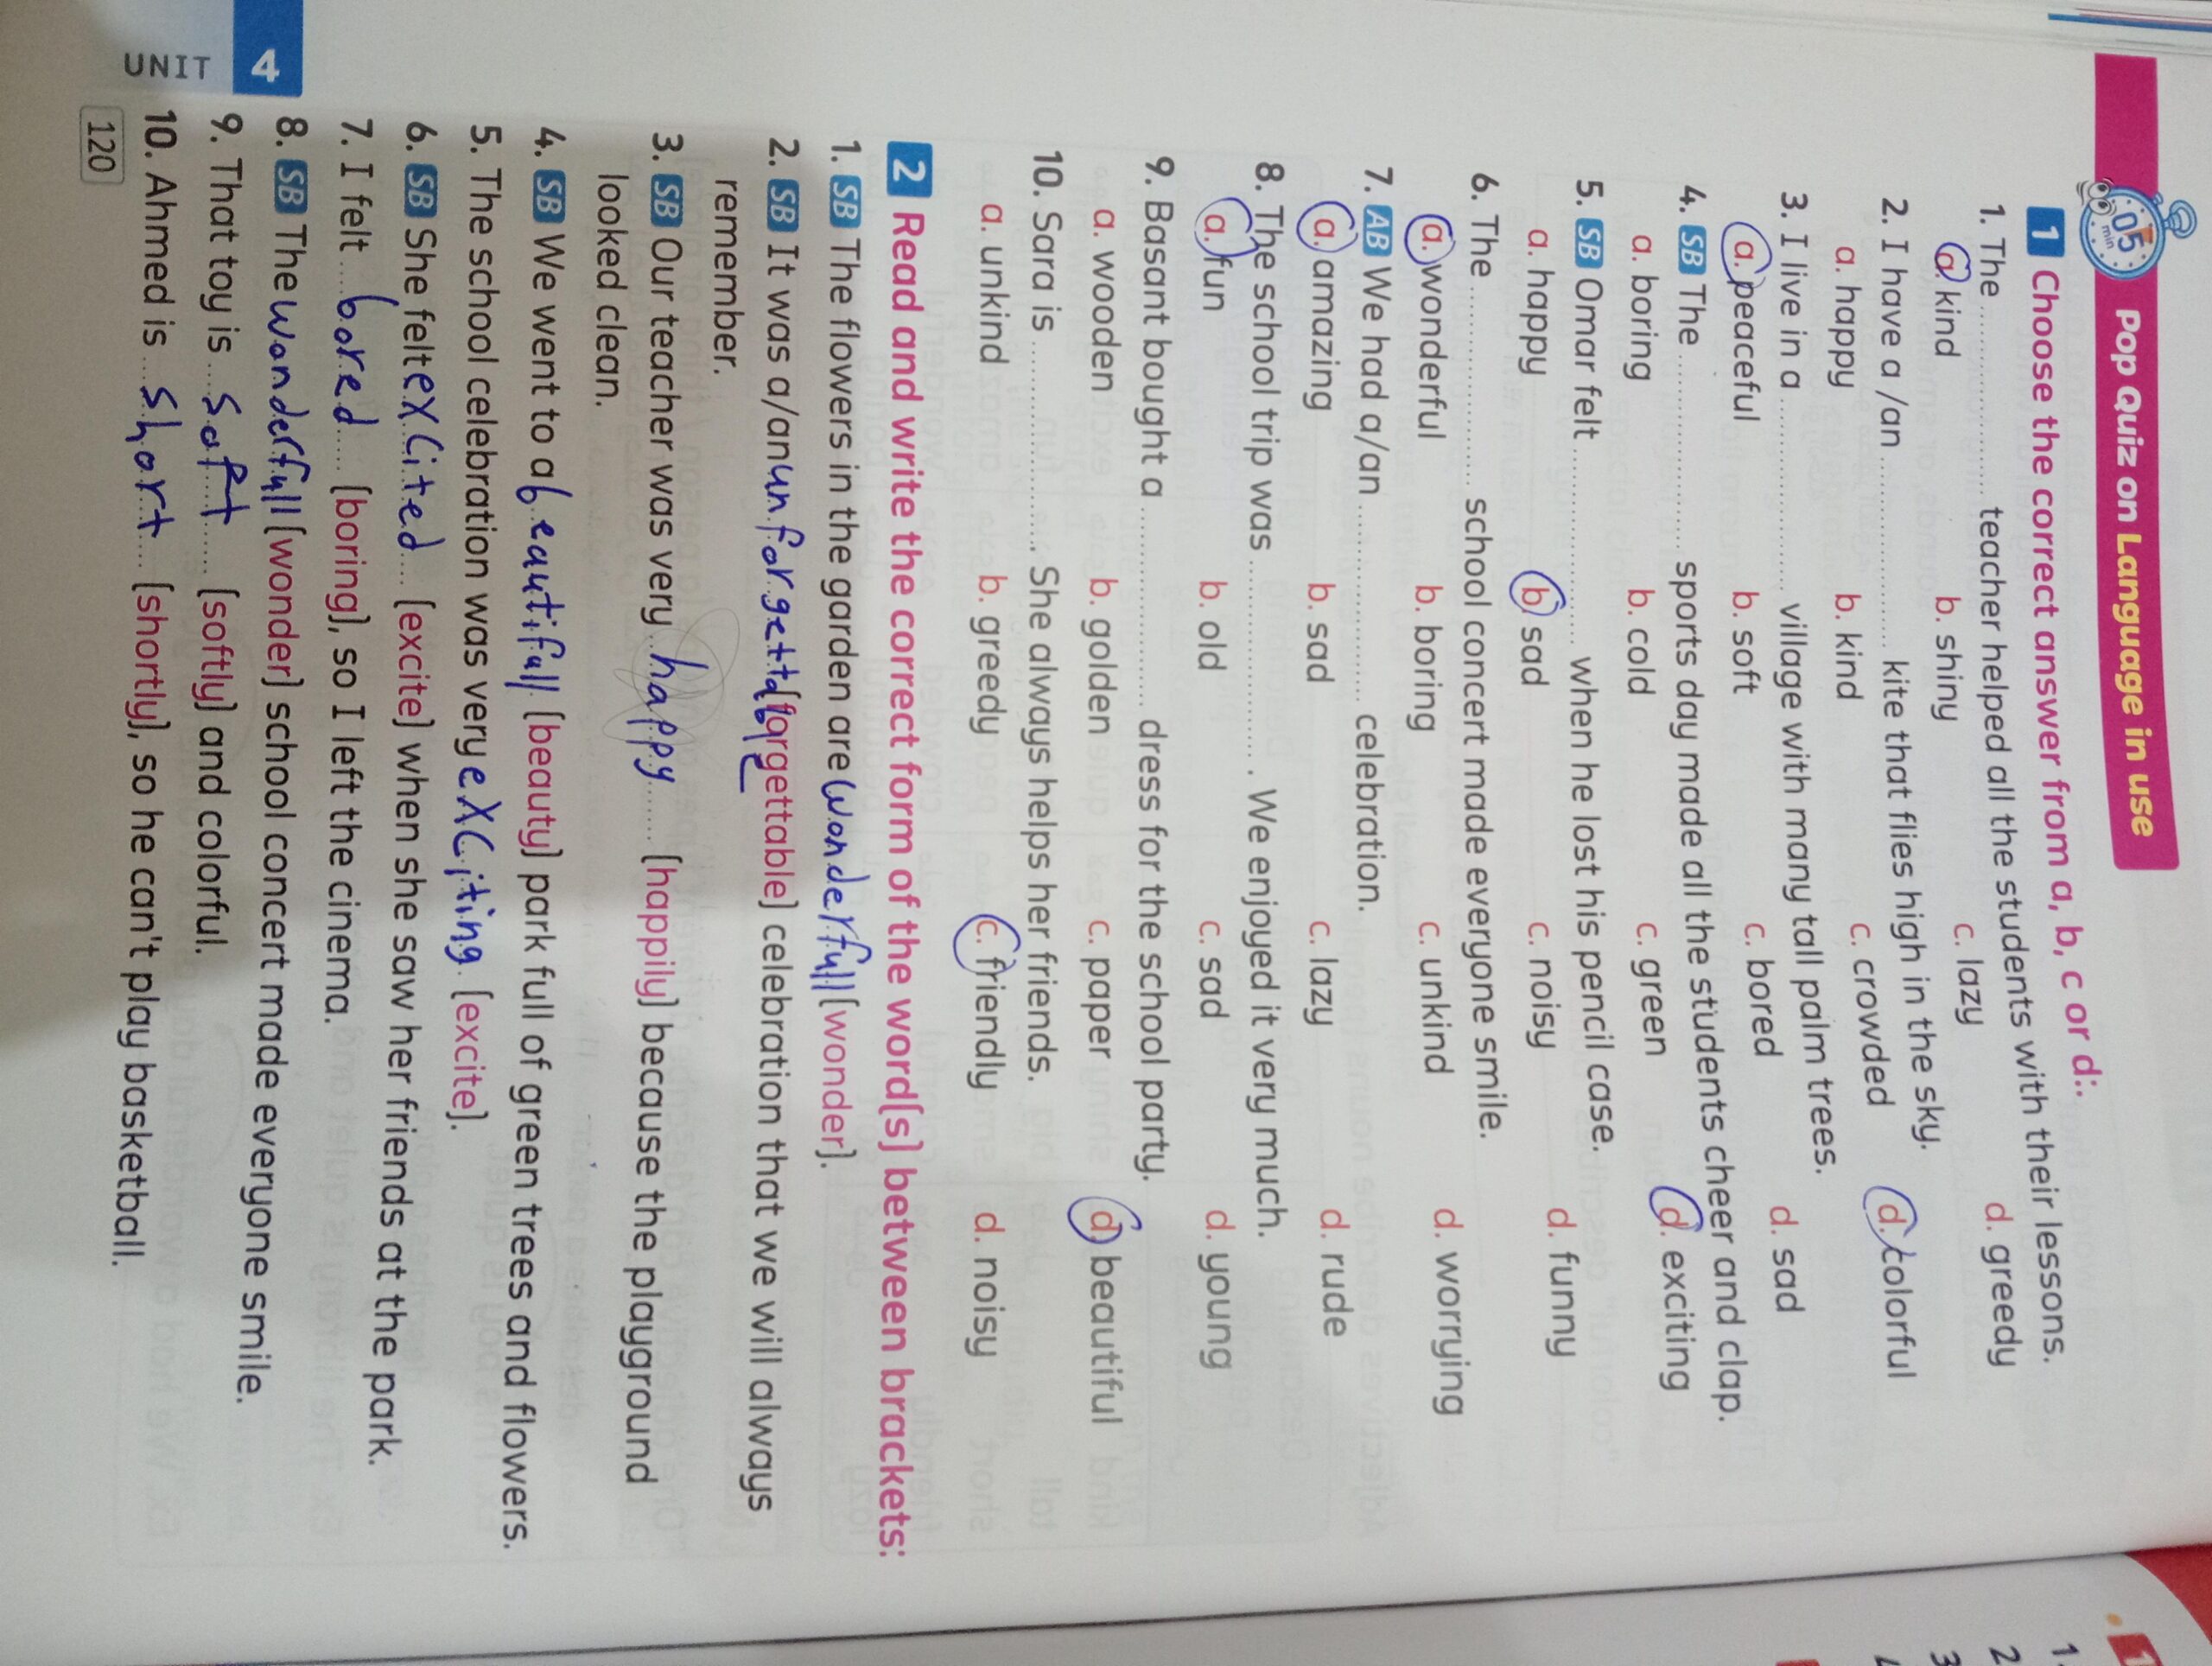 05 min Pop Quiz on Language in use
1 Choose the correct answer from a, b, c or d:.
1. The .................... teacher helped all the students with their lessons.
a. kind b. shiny c. lazy d. greedy
2. I have a /an .................... kite that flies high in the sky.
a. happy b. kind c. crowded d. colorful
3. I live in a .................... village with many tall palm trees.
a. peaceful b. soft c. bored d. sad
4. SB The .................... sports day made all the students cheer and clap.
a. boring b. cold c. green d. exciting
5. SB Omar felt .................... when he lost his pencil case.
a. happy b. sad c. noisy d. funny
6. The .................... school concert made everyone smile.
a. wonderful b. boring c. unkind d. worrying
7. AB We had a/an .................... celebration.
a. amazing b. sad c. lazy d. rude
8. The school trip was .................... . We enjoyed it very much.
a. fun b. old c. sad d. young
9. Basant bought a .................... dress for the school party.
a. wooden b. golden c. paper d. beautiful
10. Sara is .................... . She always helps her friends.
a. unkind b. greedy c. friendly d. noisy
2 Read and write the correct form of the word(s) between brackets:
1. SB The flowers in the garden are wonderfull (wonder).
2. SB It was a/an unforgettable (forgettable) celebration that we will always
remember.
3. SB Our teacher was very happy (happily) because the playground
looked clean.
4. SB We went to a beautifull (beauty) park full of green trees and flowers.
5. The school celebration was very exciting (excite).
6. SB She felt excited (excite) when she saw her friends at the park.
7. I felt bored (boring), so I left the cinema.
8. SB The wonderfull (wonder) school concert made everyone smile.
9. That toy is soft (softly) and colorful.
10. Ahmed is short (shortly), so he can't play basketball.
UNIT 4
120
1
1.
2
3